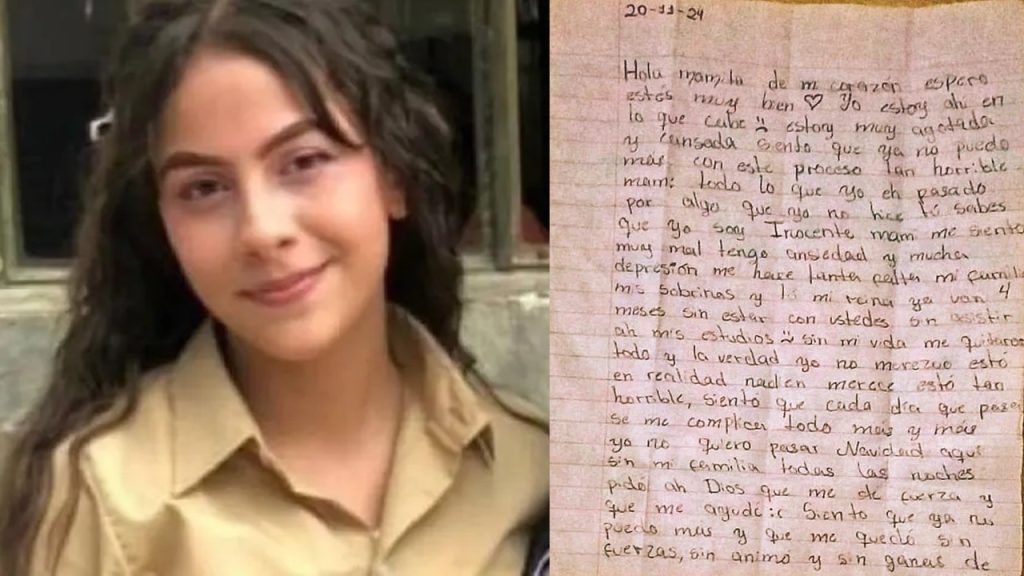 20-11-24
Hola mamita de mi corazón espero
estés muy bien ♡ Yo estoy ahí en
lo que cabe estoy muy agotada
y cansada siento que ya no puedo
más con este proceso tan horrible
mami todo lo que yo eh pasado
por algo que yo no hice tú sabes
que yo soy Inocente mami me siento
muy mal tengo ansiedad y mucha
depresión me hace tanta falta mi familia
mis sobrinas y tú mi reina ya van 4
meses sin estar con ustedes sin asistir
ah mis estudios sin mi vida me quitaron
todo y la verdad yo no merezco estó
en realidad nadien merece estó tan
horrible, siento que cada día que pasa
se me complica todo más y más
ya no quiero pasar Navidad aquí
sin mi familia todas las noches
pido ah Dios que me de fuerza y
que me ayude Siento que ya no
puedo más y que me quedo sin
fuerzas, sin animo y sin ganas de